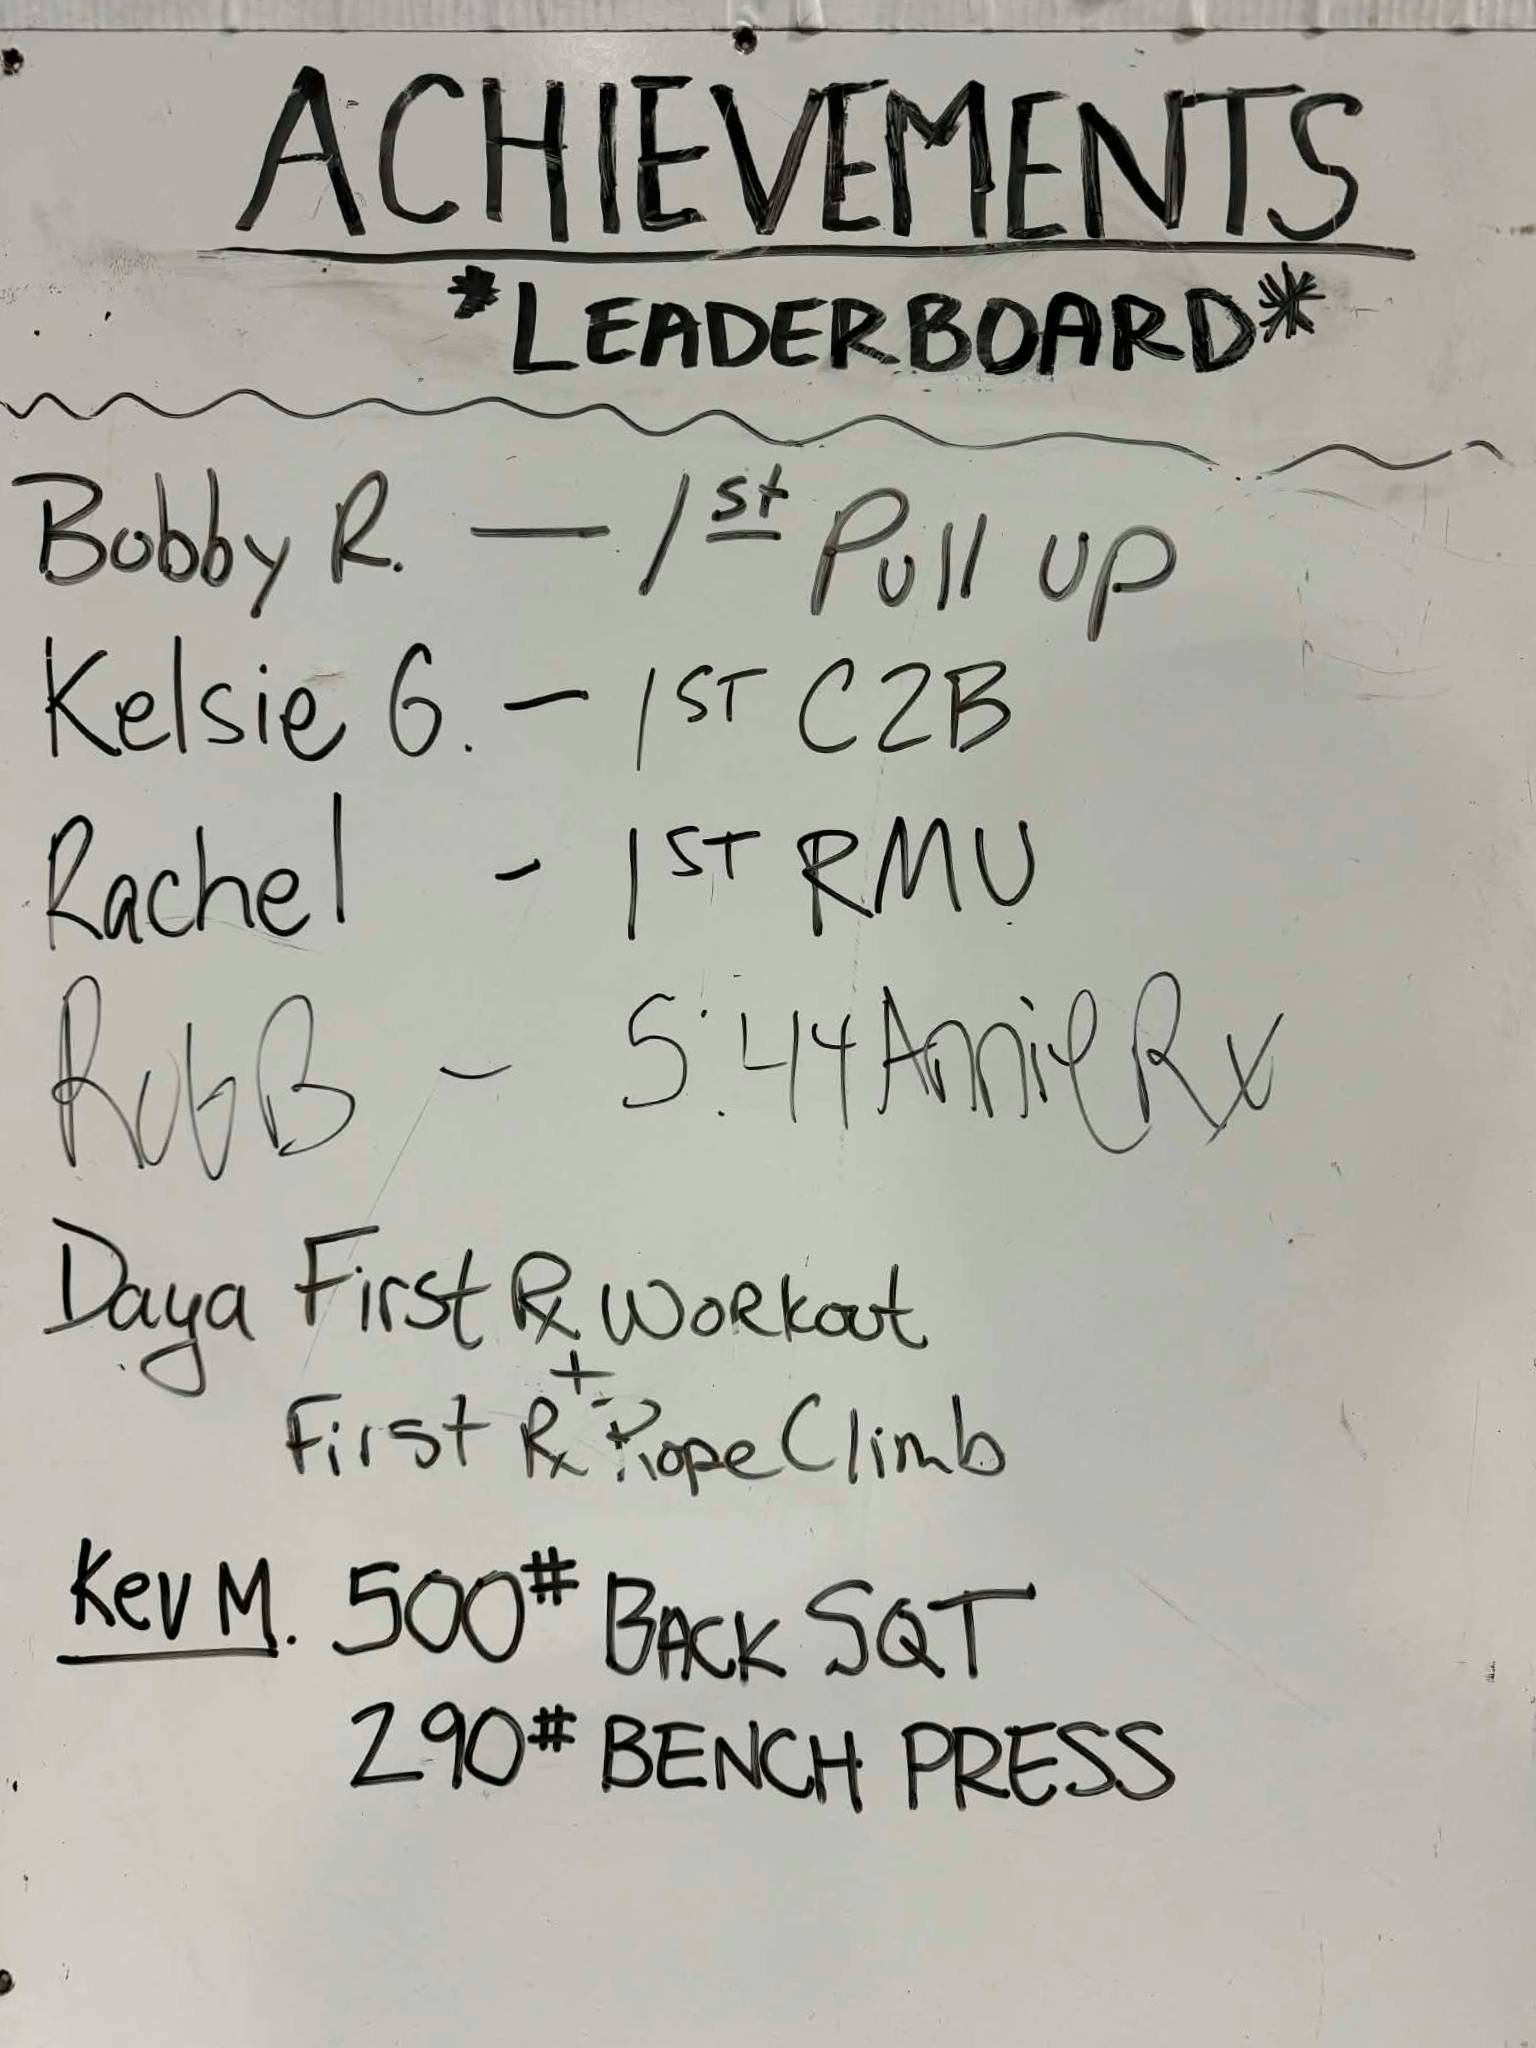 ACHIEVEMENTS
*LEADERBOARD*
Bobby R. — 1st Pull up
Kelsie G. - 1ST C2B
Rachel - 1ST RMU
Rob B - 5:44 Annie Rx
Daya First Rx Workout
+
First Rx Rope Climb
Kev M. 500# BACK SQT
290# BENCH PRESS